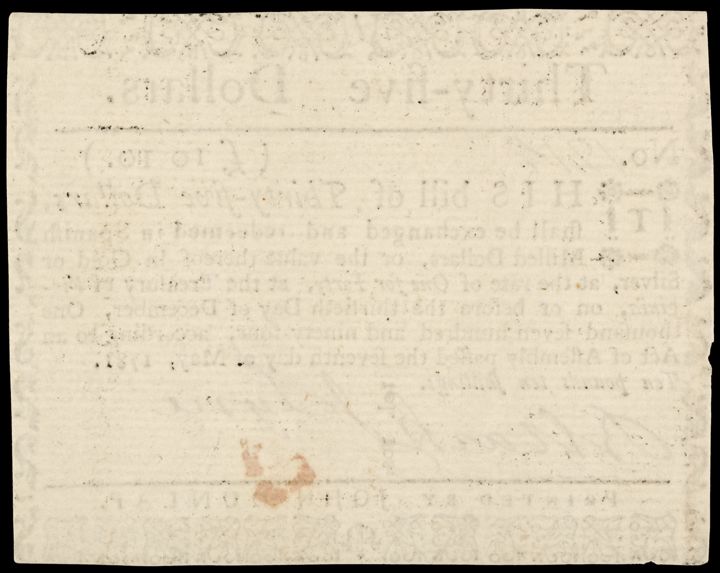 Thirty-five Dollars.
No. (£ 10 10.)
THIS bill of Thirty-five Dollars,
shall be exchanged and redeemed in Spanish
Milled Dollars, or the value thereof in Gold or
Silver, at the rate of One for Forty, at the Treasury of
on or before the thirtieth Day of December, One
thousand seven hundred and ninety-four, according to an
Act of Assembly passed the seventh day of May, 1781.
Ten pounds ten shillings.
PRINTED BY JOHN DUNLAP.